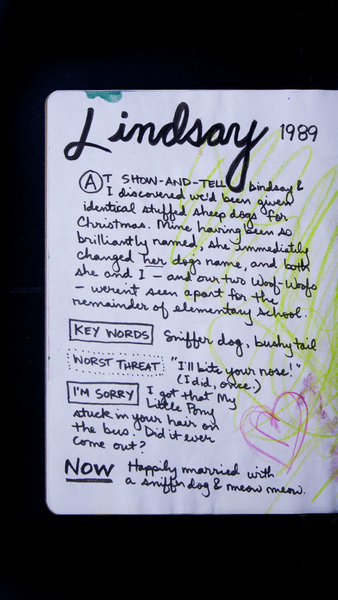 Lindsay 1989
AT SHOW-AND-TELL Lindsay &
I discovered we'd been given
identical stuffed sheep dogs for
Christmas. Mine having been so
brilliantly named, she immediately
changed her dog's name, and both
she and I – and our two Woof-Woofs
– weren't seen apart for the
remainder of elementary school.
KEY WORDS Sniffer dog, bushy tail
WORST THREAT "I'll bite your nose!"
(I did, once.)
I'M SORRY I got that My
Little Pony
stuck in your hair on
the bus. Did it ever
come out?
NOW Happily married with
a sniffer dog & meow meow.